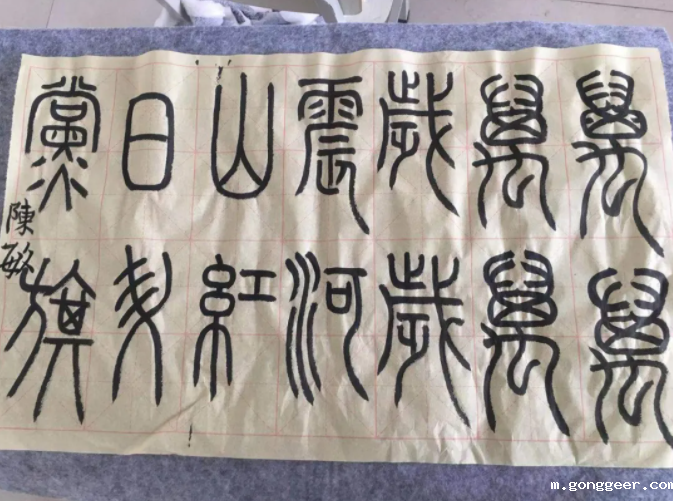 萬萬
萬萬
歲歲
震河
山紅
日
黨旗
陳敏
m.gonggeer.com